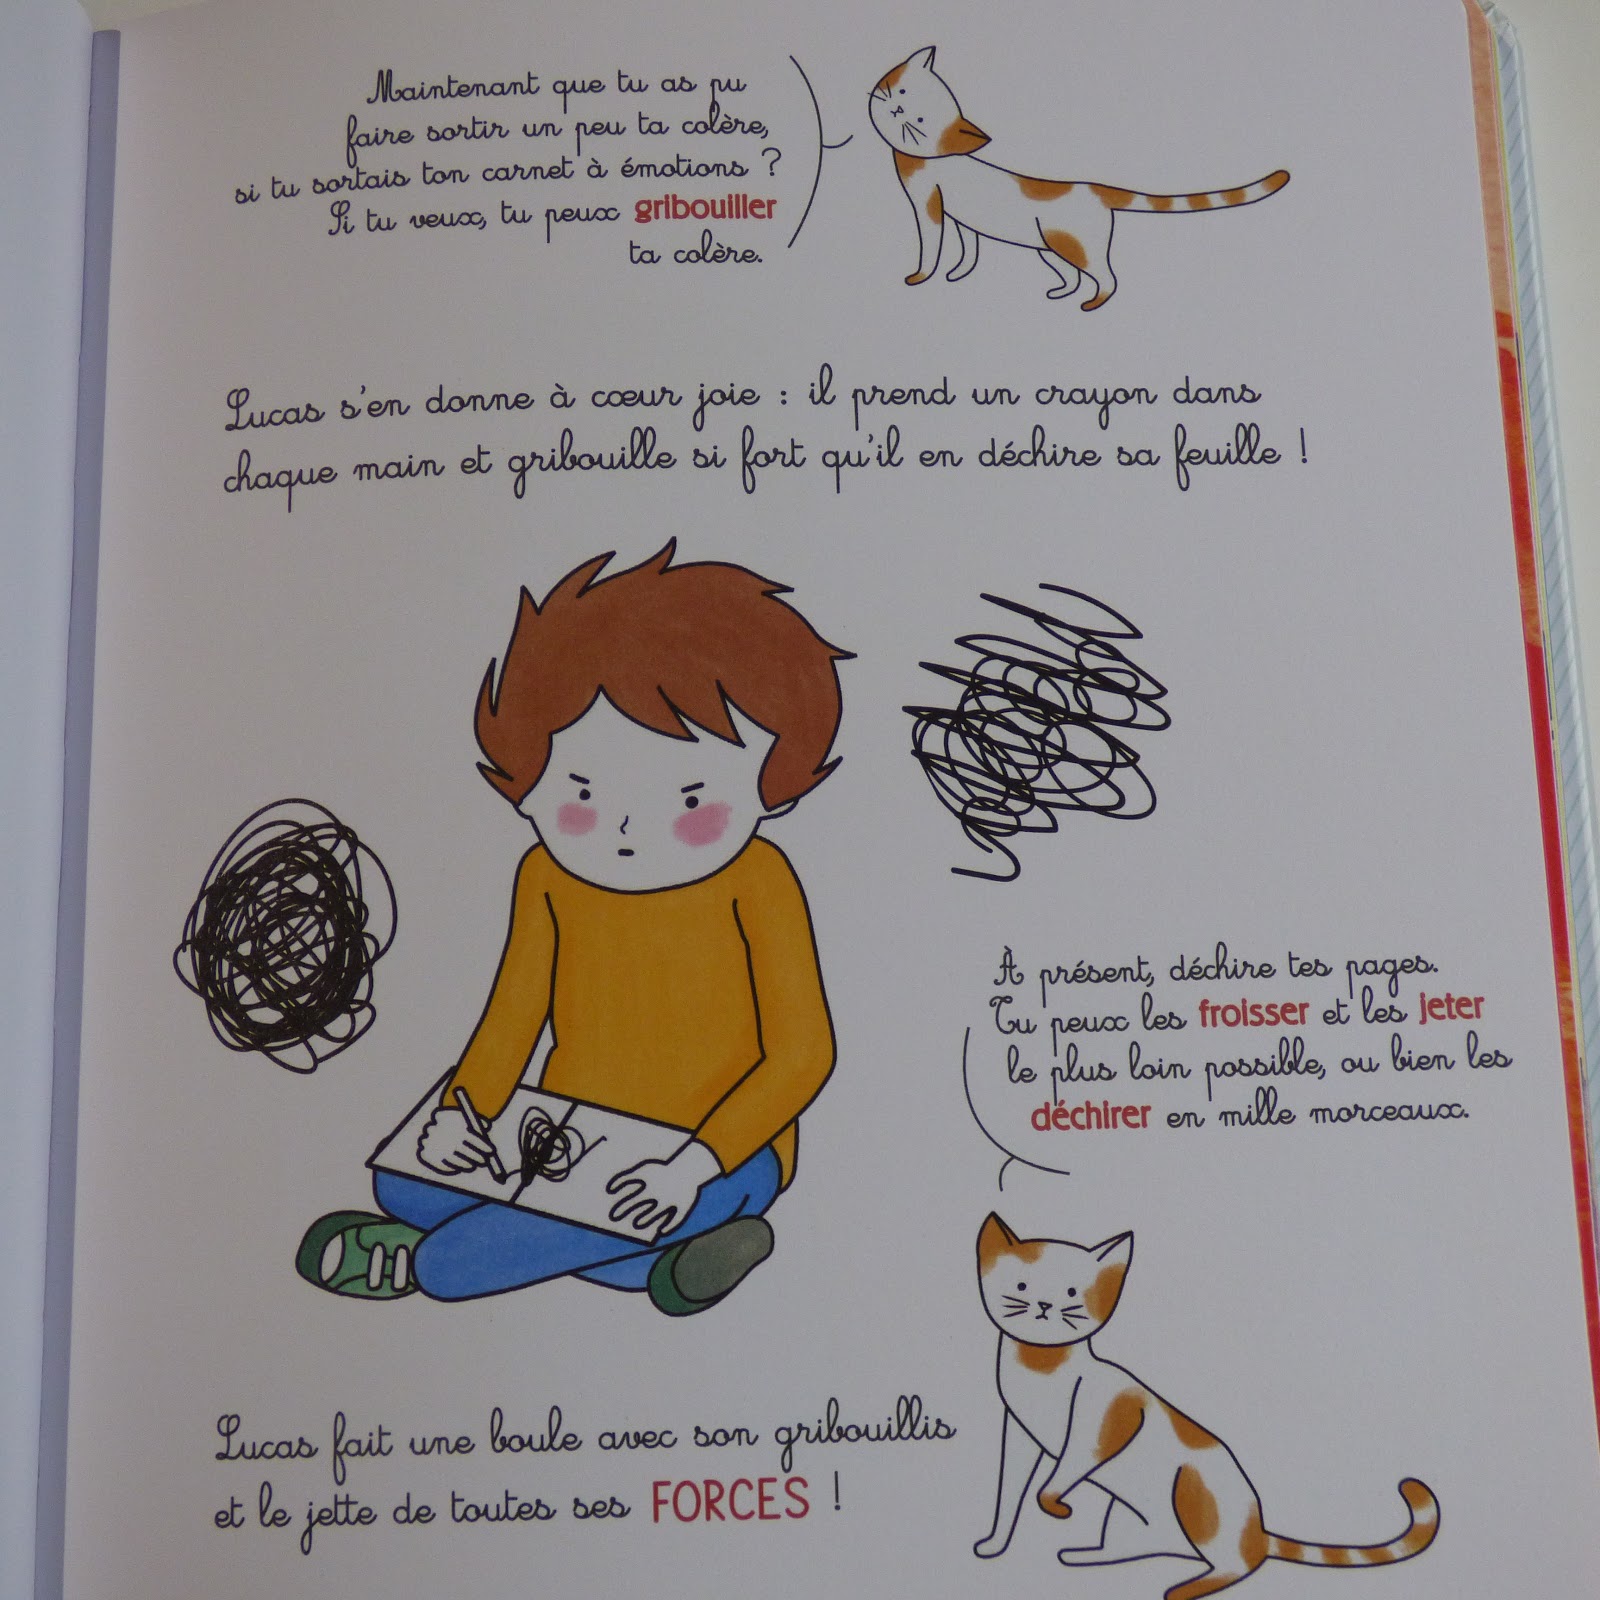 Maintenant que tu as pu
faire sortir un peu ta colère,
si tu sortais ton carnet à émotions ?
Si tu veux, tu peux gribouiller
ta colère.
Lucas s'en donne à cœur joie : il prend un crayon dans
chaque main et gribouille si fort qu'il en déchire sa feuille !
À présent, déchire tes pages.
Tu peux les froisser et les jeter
le plus loin possible, ou bien les
déchirer en mille morceaux.
Lucas fait une boule avec son gribouillis
et le jette de toutes ses FORCES !